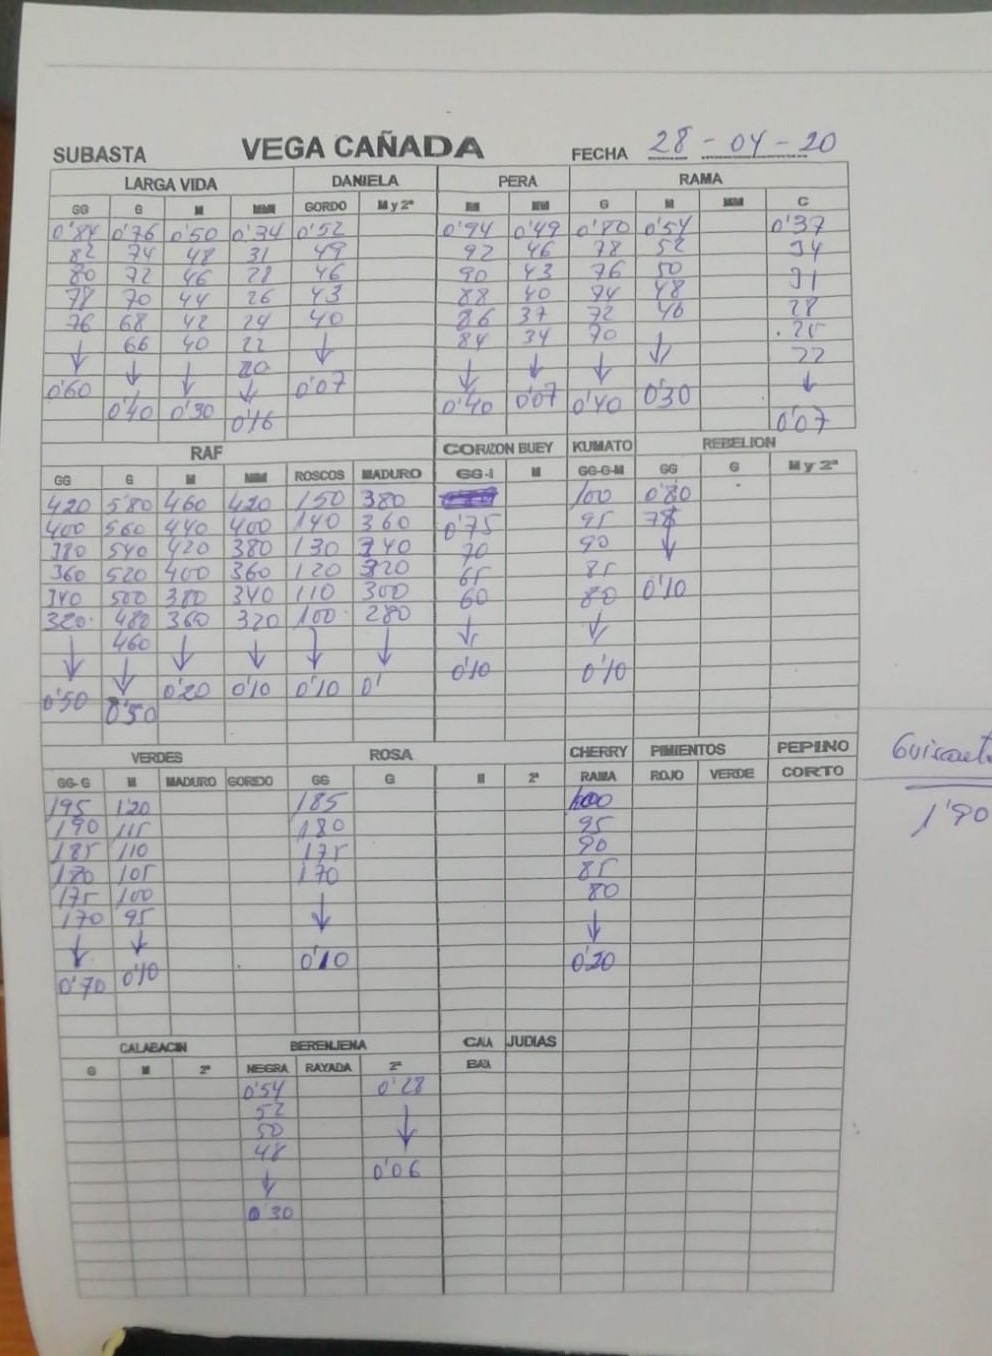 SUBASTA VEGA CAÑADA FECHA 28-04-20
LARGA VIDA DANIELA PERA RAMA
GG G M MM GORDO M y 2ª M MM G M MM C
0'84 0'76 0'50 0'34 0'52 0'94 0'49 0'80 0'54 0'37
82 74 48 31 49 92 46 78 52 34
80 72 46 28 46 90 43 76 50 31
78 70 44 26 43 88 40 74 48 28
76 68 42 24 40 86 37 72 46 25
↓ 66 40 22 ↓ 84 34 70 ↓ 22
0'60 ↓ ↓ 20 0'07 ↓ ↓ ↓ 0'30 ↓
0'40 0'30 ↓ 0'40 0'07 0'40
0'16 0'07
RAF CORAZON BUEY KUMATO REBELION
GG G M MM ROSCOS MADURO GG-G M GG-G-M GG G M y 2ª
420 580 460 420 150 380 100 0'80
400 560 440 400 140 360 0'75 95 78
380 540 420 380 130 340 70 90 ↓
360 520 400 360 120 320 65 85
340 500 380 340 110 300 60 80 0'10
320 480 360 320 100 280 ↓ ↓
↓ 460 ↓ ↓ ↓ ↓ 0'10 0'10
0'50 ↓ 0'20 0'10 0'10 0'
0'50
VERDES ROSA CHERRY PIMIENTOS PEPINO
GG-G M MADURO GORDO GG G M 2ª RAMA ROJO VERDE CORTO
195 120 185 100
190 115 180 95
185 110 175 90
180 105 170 85
175 100 ↓ 80
170 95 ↓
↓ ↓ 0'10 0'20
0'70 0'10
Guisant
1'90
CALABACIN BERENJENA CAIA JUDIAS
G M 2ª NEGRA RAYADA 2ª
0'54 0'28
52 ↓
50
48 0'06
↓
0'30